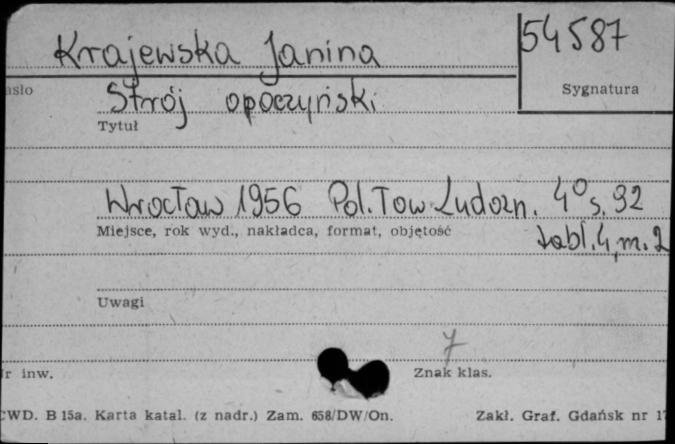 Krajewska Janina 54587
asło Sygnatura
Strój opoczyński
Tytuł
Wrocław 1956 Pol. Tow. Ludozn. 4° s. 92
Miejsce, rok wyd., nakładca, format, objętość tabl. 4, m. 2
Uwagi
7
r inw. Znak klas.
CWD. B 15a. Karta katal. (z nadr.) Zam. 658/DW/On. Zakł. Graf. Gdańsk nr 1